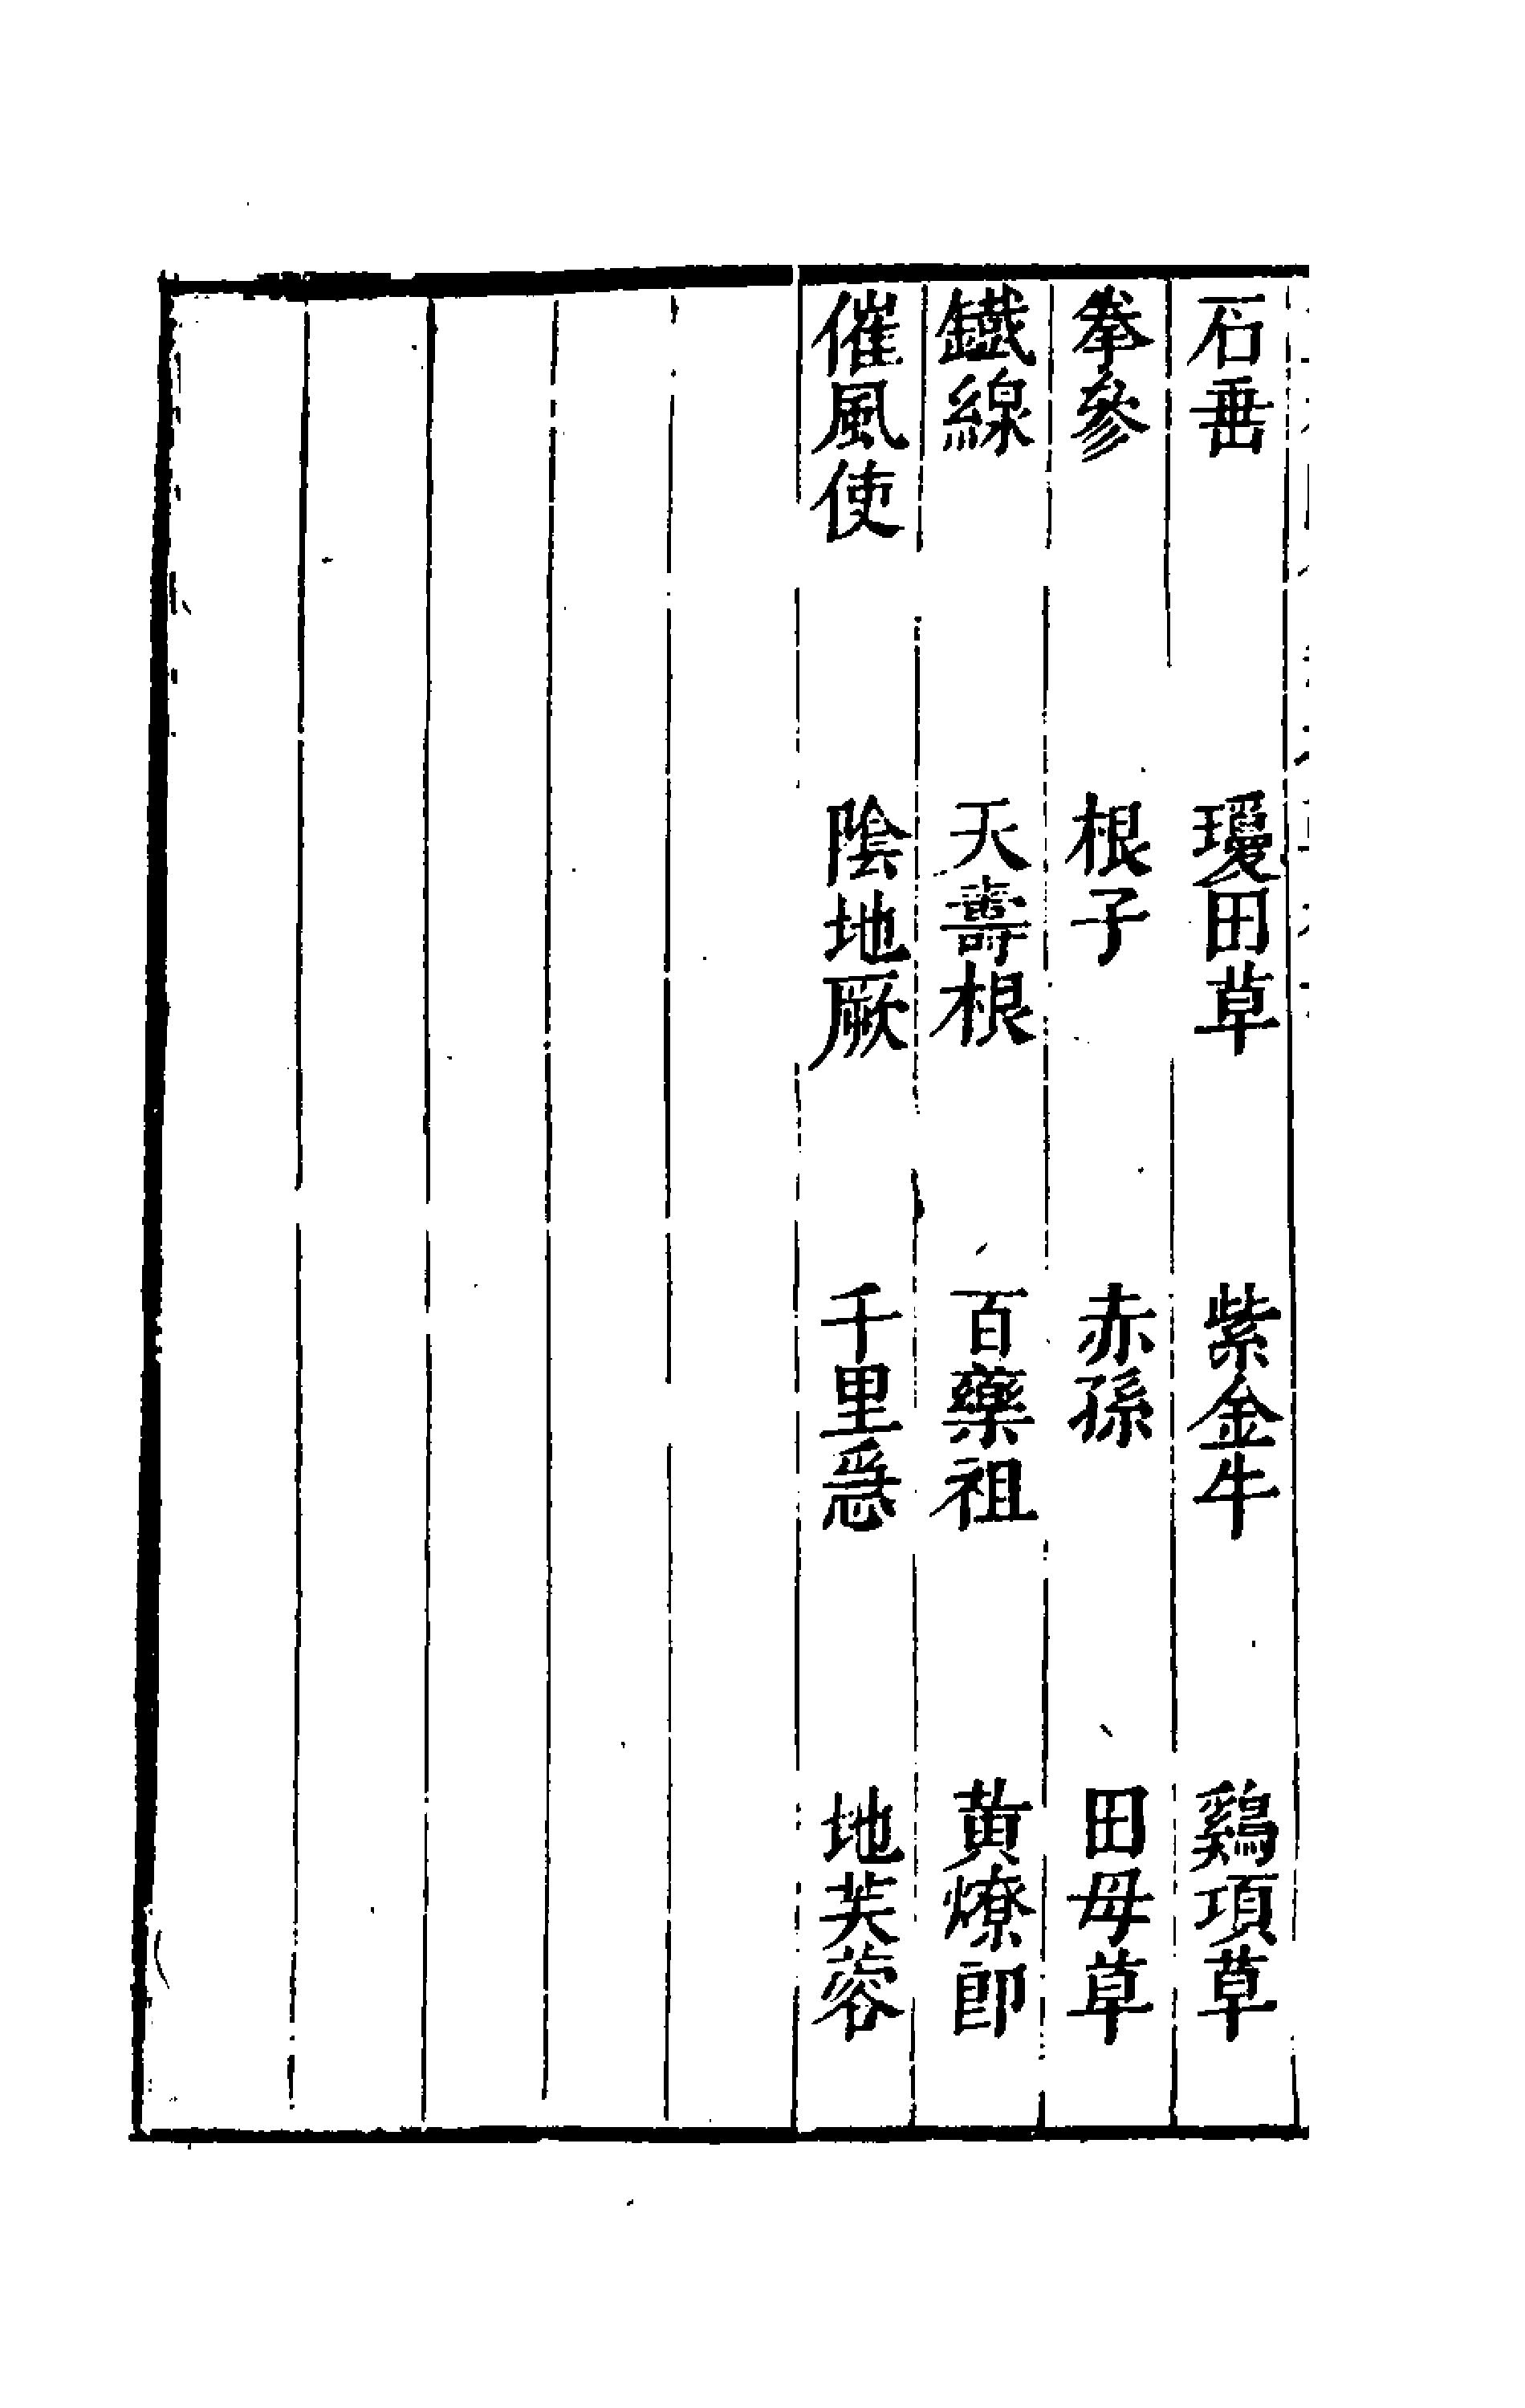 石垂 瓊田草 紫金牛 鷄項草
拳參 根子 赤孫 田母草
鐵線 天壽根 百藥祖 黃燎郎
催風使 陰地厥 千里急 地芙蓉